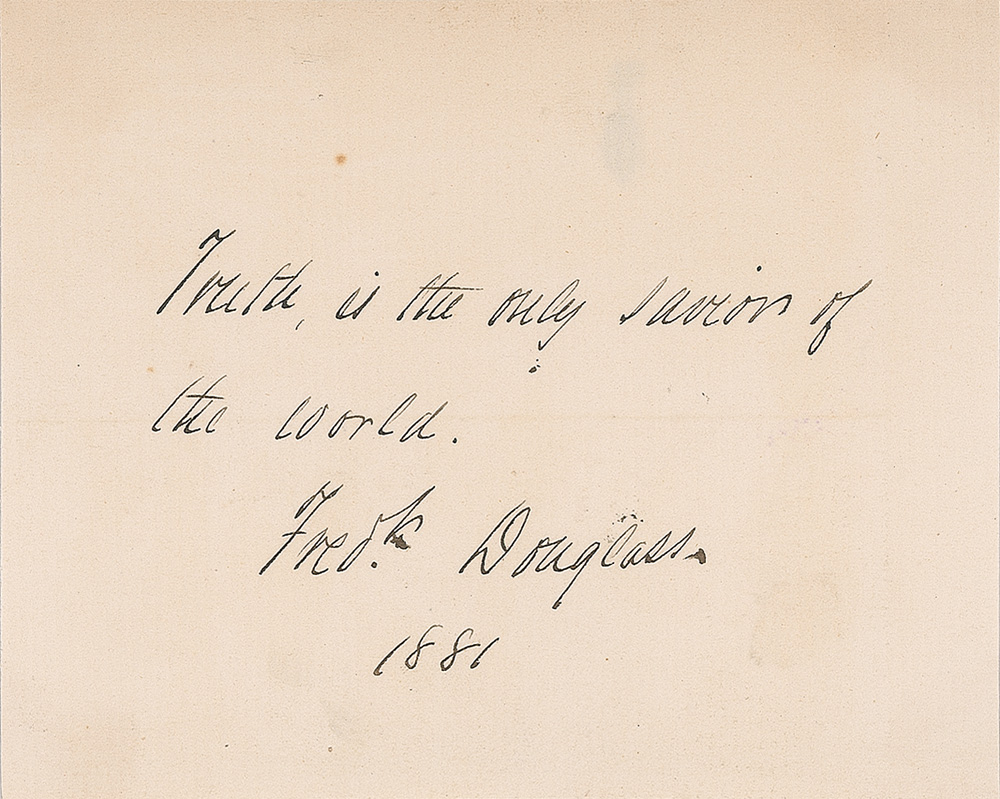 Truth, is the only savior of
the world.
Fredk. Douglass.
1881